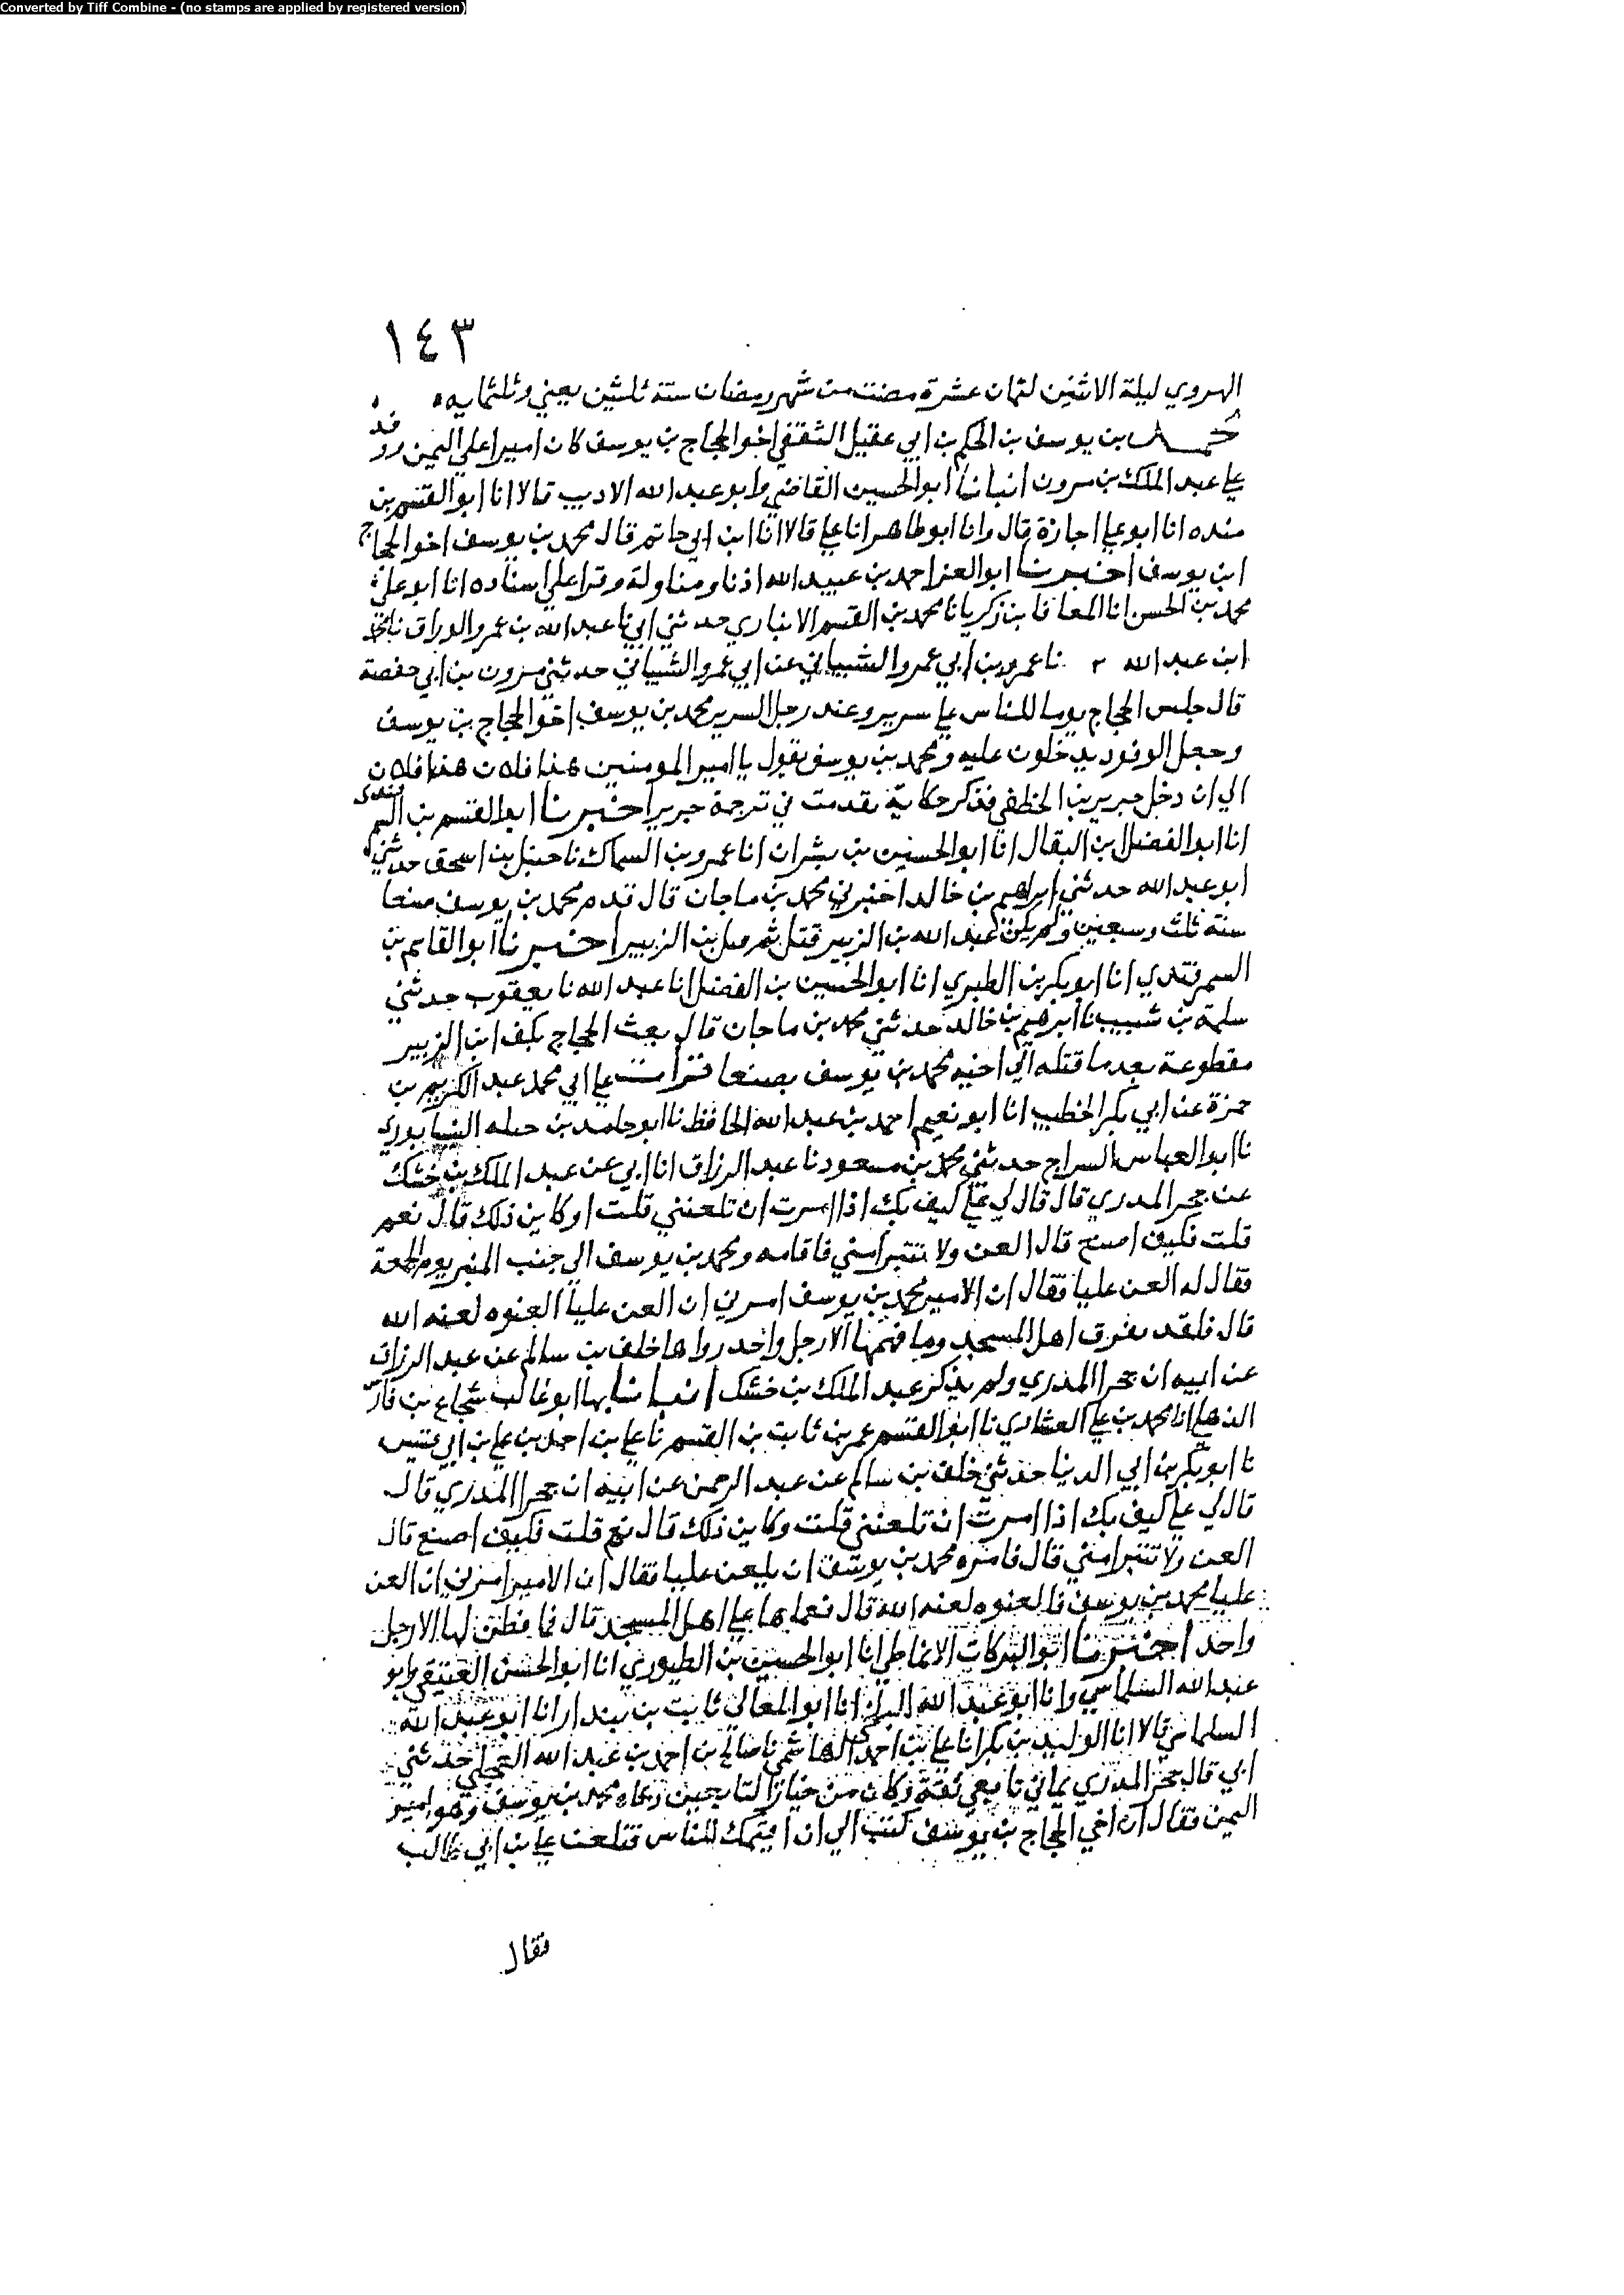 Converted by Tiff Combine - (no stamps are applied by registered version)
١٤٣
الهروي ليلة الاثنين لثمان عشرة مضت من شهر رمضان ستة ثلثين يعني وثلثمايه
محمد بن يوسف بن الحكم بن ابي عقيل الثقفي اخو الحجاج بن يوسف كان اميرا علي اليمن ووفد
علي عبد الملك بن مرون انبانا ابو الحسين القاضي وابو عبد الله الاديب قالا انا ابو القسم بن
منده انا ابو علي اجازة قال وانا ابو طاهر انا علي قالا انا ابن ابي حاتم قال محمد بن يوسف اخو الحجاج
ابن يوسف اخبرنا ابو العز احمد بن عبيد الله اذنا ومناولة وقرا علي اسناده انا ابو علي
محمد بن الحسن انا المعافا بن زكريا نا محمد بن القسم الانباري حدثني ابي نا عبد الله بن عمرو الوراق نا
ابن عبد الله نا عمرو بن ابي عمرو الشيباني عن ابي عمرو الشيباني حدثني مرون بن ابي حفصة
قال جلس الحجاج يوما للناس علي سرير وعند رجل السرير محمد بن يوسف اخو الحجاج بن يوسف
وجعل الوفود يدخلون عليه ومحمد بن يوسف يقول يا امير المومنين هذا فلان هذا فلان
الي ان دخل جرير بن الخطفي فذكر حكاية تقدمت في ترجمة جرير اخبرنا ابو القسم بن السمرقندي
انا ابو الفضل بن البقال انا ابو الحسين بن بشران انا عمرو بن السماك نا حنبل بن اسحق حدثني
ابو عبد الله حدثني ابراهيم بن خالد اخبرني محمد بن ماجان قال قدم محمد بن يوسف صنعا
سنة ثلث وسبعين ولم يكن عبد الله بن الزبير قتل ثم قتل بن الزبير اخبرنا ابو القاسم بن
السمرقندي انا ابو بكر بن الطبري انا ابو الحسين بن الفضل انا عبد الله نا يعقوب حدثني
سلمة بن شبيب نا ابرهيم بن خالد حدثني محمد بن ماجان قال بعث الحجاج بكف ابن الزبير
مقطوعة بعد ما قتله الي اخيه محمد بن يوسف بصنعا قرات علي ابي محمد عبد الكريم بن
حمزة عن ابي بكر الخطيب انا ابو نعيم احمد بن عبد الله الحافظ نا ابو حامد بن جبله النيسابوري
نا ابو العباس السراج حدثني محمد بن مسعود نا عبد الرزاق انا ابي عن عبد الملك بن خشك
عن حجر المدري قال قال لي علي كيف بك اذا امرت ان تلعنني قلت او كاين ذلك قال نعم
قلت فكيف اصنع قال العن ولا تتبرا مني فاقامه محمد بن يوسف الي جنب المنبر يوم الجمعة
فقال له العن عليا فقال ان الامير محمد بن يوسف امرني ان العن عليا العنوه لعنه الله
قال فلقد تفرق اهل المسجد وما فهمها الا رجل واحد رواها خلف بن سالم عن عبد الرزاق
عن ابيه ان حجرا المدري ولم يذكر عبد الملك بن خشك انبانا بها ابو غالب شجاع بن فارس
الذهلي انا محمد بن علي العشاري نا ابو القسم عمر بن ثابت بن القسم نا علي بن احمد بن علي بن ابي قيس
نا ابو بكر بن ابي الدنيا حدثني خلف بن سالم عن عبد الرحمن عن ابيه ان حجرا المدري قال
قال لي علي كيف بك اذا امرت ان تلعنني قلت وكاين ذلك قال نعم قلت فكيف اصنع قال
العن ولا تتبرا مني قال فامره محمد بن يوسف ان يلعن عليا فقال ان الامير امرني ان العن
عليا محمد بن يوسف فالعنوه لعنه الله قال فعماها علي اهل المسجد قال فما فطن لها الا رجل
واحد اخبرنا ابو البركات الانماطي انا ابو الحسين بن الطيوري انا ابو الحسن العتيقي وابو
عبد الله السلماسي وانا ابو عبد الله انا ابو المعالي ثابت بن بندار انا ابو عبد الله
السلماسي قالا انا الوليد بن بكر انا علي بن احمد الهاشمي نا صالح بن احمد بن عبد الله العجلي حدثني
ابي قال حجر المدري يماني تابعي ثقة وكان من خيار التابعين دعاه محمد بن يوسف وهو امير
اليمن فقال ان اخي الحجاج بن يوسف كتب الي ان اقيمك للناس فتلعن علي بن ابي طالب
فقال